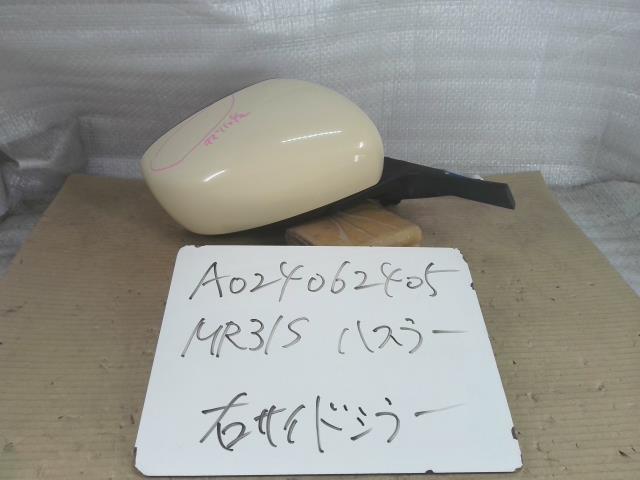 A024062405
MR31S ハスラー
右サイドミラー